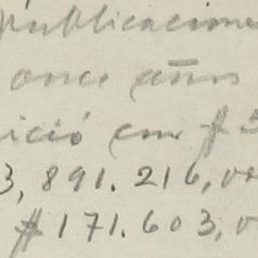 publicacione
once años
ició con $ 3
3,891.216, vo
$ 171.603, v